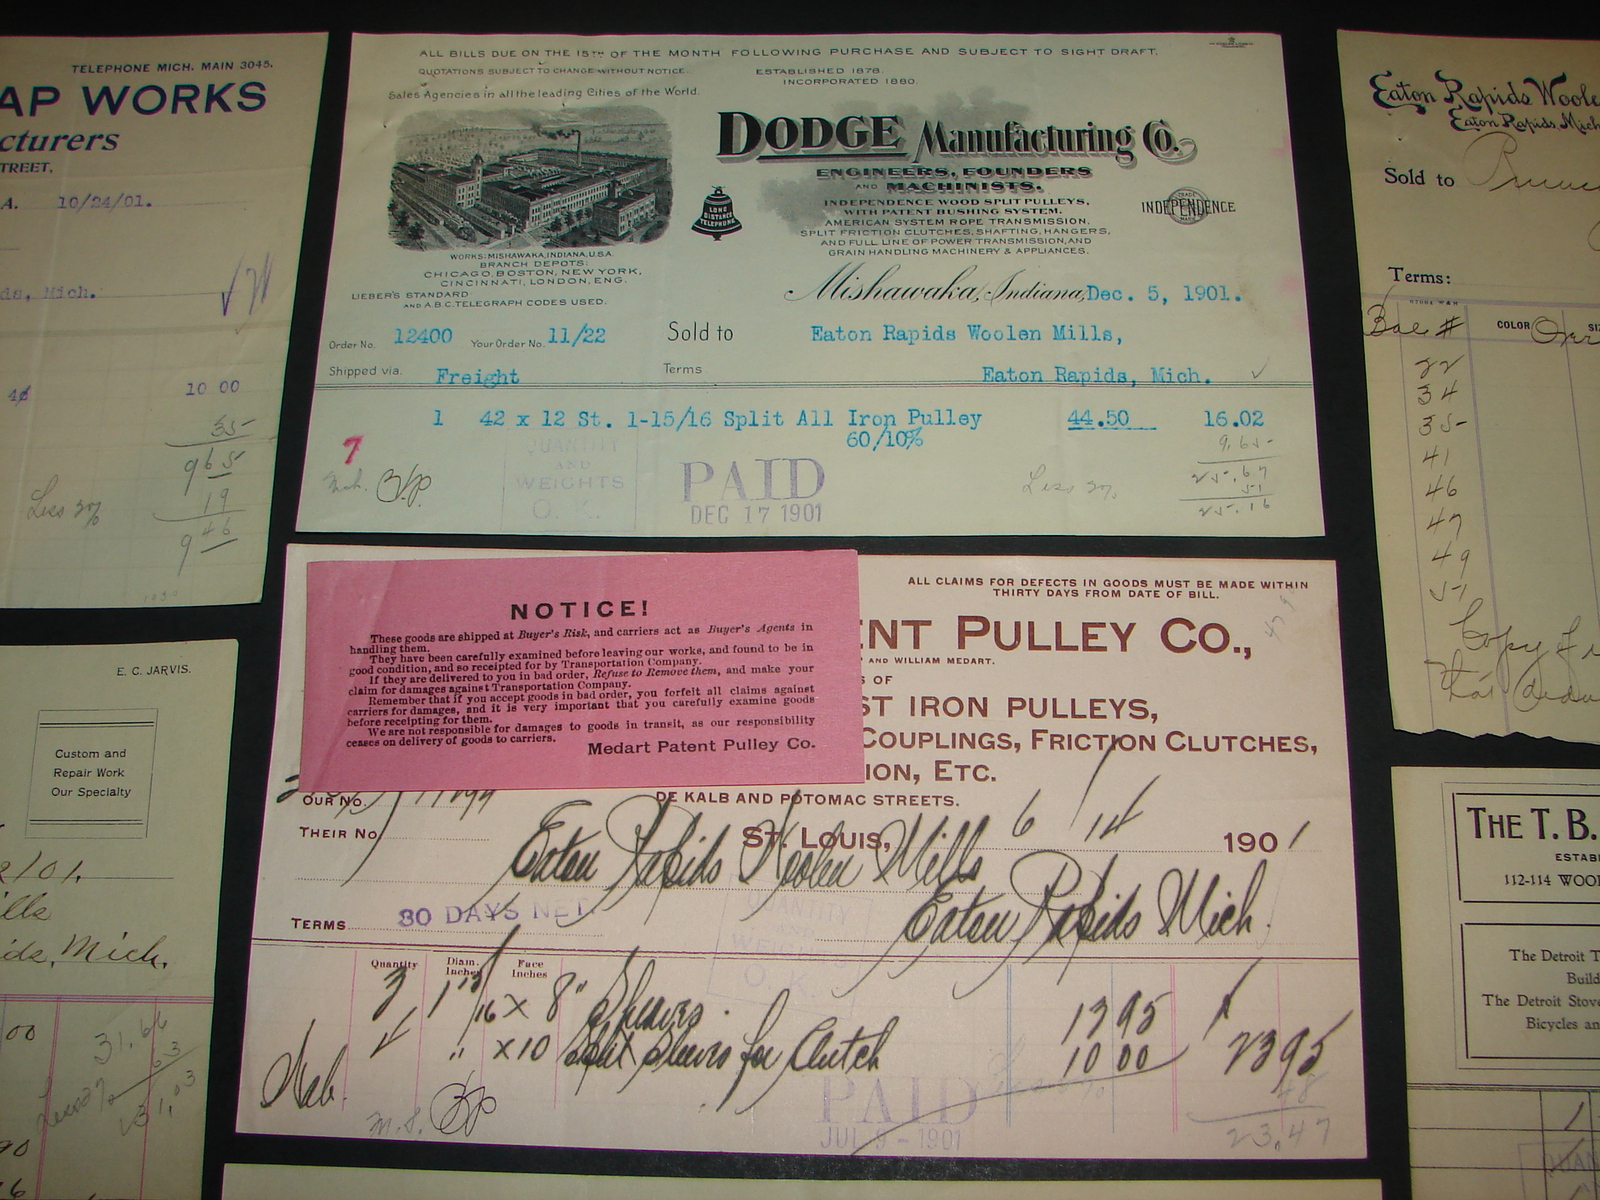 TELEPHONE MICH. MAIN 3045.
AP WORKS
cturers
TREET,
A. 10/24/01.
ds, Mich.
4¢ 10 00
35-
965-
Less 2% 19
946
ALL BILLS DUE ON THE 15TH OF THE MONTH FOLLOWING PURCHASE AND SUBJECT TO SIGHT DRAFT.
QUOTATIONS SUBJECT TO CHANGE WITHOUT NOTICE.
ESTABLISHED 1878.
INCORPORATED 1880.
Sales Agencies in all the leading Cities of the World.
DODGE Manufacturing Co.
ENGINEERS, FOUNDERS
AND MACHINISTS.
INDEPENDENCE WOOD SPLIT PULLEYS,
WITH PATENT BUSHING SYSTEM.
AMERICAN SYSTEM ROPE TRANSMISSION.
SPLIT FRICTION CLUTCHES, SHAFTING, HANGERS,
AND FULL LINE OF POWER TRANSMISSION, AND
GRAIN HANDLING MACHINERY & APPLIANCES.
LONG
DISTANCE
TELEPHONE.
TRADE
INDEPENDENCE
MARK
WORKS: MISHAWAKA, INDIANA, U.S.A.
BRANCH DEPOTS.
CHICAGO, BOSTON, NEW YORK,
CINCINNATI, LONDON, ENG.
LIEBER'S STANDARD
AND A.B.C. TELEGRAPH CODES USED.
Mishawaka, Indiana, Dec. 5, 1901.
Order No. 12400 Your Order No. 11/22 Sold to Eaton Rapids Woolen Mills,
Shipped via. Freight Terms Eaton Rapids, Mich.
1 42 x 12 St. 1-15/16 Split All Iron Pulley 44.50 16.02
60/10%
7
QUANTITY
AND
WEIGHTS
O. K.
PAID
DEC 17 1901
Less 2%
9.65-
25-.67
51
25-.16
Eaton Rapids Woolen
Eaton Rapids, Mich
Sold to
Terms:
Bale # COLOR SI
22
34
35-
41
46
47
49
51
Copy
NOTICE!
These goods are shipped at Buyer's Risk, and carriers act as Buyer's Agents in
handling them.
They have been carefully examined before leaving our works, and found to be in
good condition, and so receipted for by Transportation Company.
If they are delivered to you in bad order, Refuse to Remove them, and make your
claim for damages against Transportation Company.
Remember that if you accept goods in bad order, you forfeit all claims against
carriers for damages, and it is very important that you carefully examine goods
before receipting for them.
We are not responsible for damages to goods in transit, as our responsibility
ceases on delivery of goods to carriers.
Medart Patent Pulley Co.
ALL CLAIMS FOR DEFECTS IN GOODS MUST BE MADE WITHIN
THIRTY DAYS FROM DATE OF BILL.
ENT PULLEY CO.,
AND WILLIAM MEDART.
S OF
ST IRON PULLEYS,
COUPLINGS, FRICTION CLUTCHES,
ION, ETC.
DE KALB AND POTOMAC STREETS.
OUR NO.
THEIR NO
ST. LOUIS, 6/14 1901
Eaton Rapids Woolen Mills
Eaton Rapids Mich.
TERMS 30 DAYS NET.
QUANTITY
AND
WEIGHTS
O. K.
Quantity Diam. Inches Face Inches
3 1 15/16 x 8" Sleeves. 13 95
" x 10 Split Sleeves for Clutch 10 00 23 95
48
23.47
PAID
JUL 9 - 1901
E. C. JARVIS.
Custom and
Repair Work
Our Specialty
2/01.
ills
ids, Mich.
00
31.66
Less 2% 63
31.03
90
THE T. B.
ESTAB
112-114 WOO
The Detroit T
Build
The Detroit Stov
Bicycles an
1
QUAN